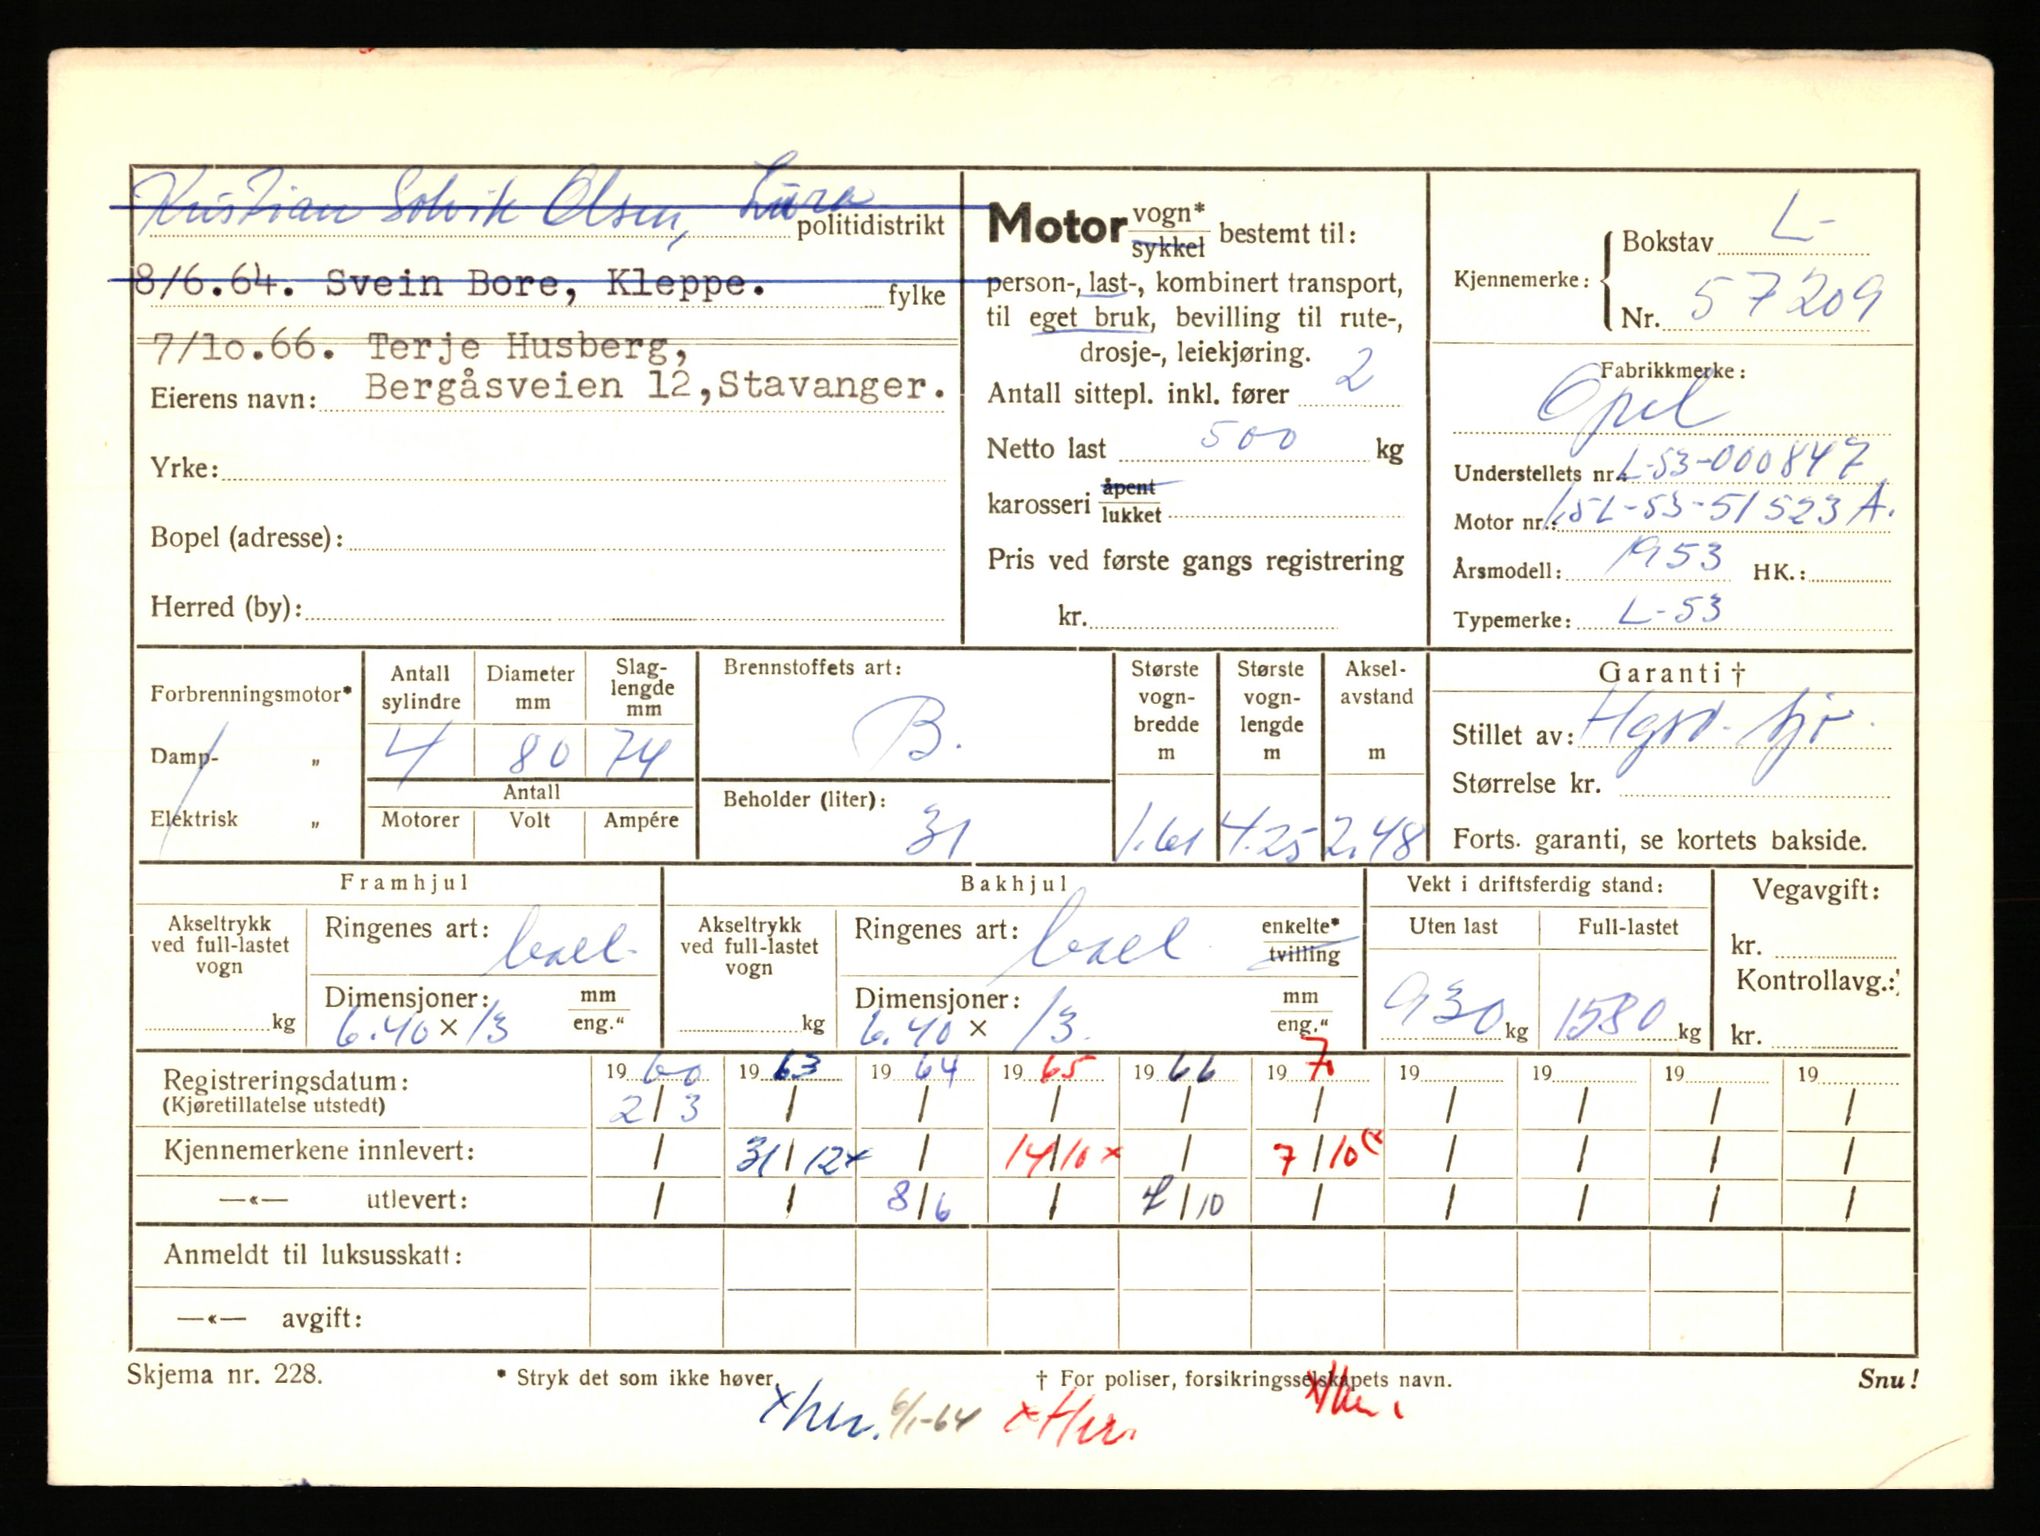 Kristian Solvik Olsen, Lura
politidistrikt
8/6.64. Svein Bore, Kleppe.
fylke
7/10.66. Terje Husberg,
Eierens navn: Bergåsveien 12, Stavanger.
Yrke:
Bopel (adresse):
Herred (by):
Motor vogn* sykkel bestemt til:
person-, last-, kombinert transport,
til eget bruk, bevilling til rute-,
drosje-, leiekjøring.
Antall sittepl. inkl. fører 2
Netto last 500 kg
karosseri åpent lukket
Pris ved første gangs registrering
kr.
Kjennemerke: Bokstav L-
Nr. 57209
Fabrikkmerke:
Opel
Understellets nr. L-53-000847
Motor nr.: 1,5L-53-51523A.
Årsmodell: 1953 HK.:
Typemerke: L-53
Forbrenningsmotor*
Damp- „
Elektrisk „
Antall sylindre
4
Diameter mm
80
Slag-
lengde
mm
74
Antall
Motorer Volt Ampére
Brennstoffets art:
B.
Beholder (liter):
31
Største
vogn-
bredde
m
1.61
Største
vogn-
lengde
m
4.25
Aksel-
avstand
m
2.48
Garanti †
Stillet av:
Størrelse kr.
Forts. garanti, se kortets bakside.
Framhjul
Akseltrykk
ved full-lastet
vogn
kg
Ringenes art:
Dimensjoner: mm eng.“
6.40 × 13
Bakhjul
Akseltrykk
ved full-lastet
vogn
kg
Ringenes art: enkelte* tvilling
Dimensjoner: mm eng.“
6.40 × 13.
Vekt i driftsferdig stand:
Uten last Full-lastet
930 kg 1580 kg
Vegavgift:
kr.
Kontrollavg.:
kr.
Registreringsdatum: 1960 1963 1964 1965 1966 197 19 19 19 19
(Kjøretillatelse utstedt) 2/3 / / / / / / / / /
Kjennemerkene innlevert: / 31/12x / 14/10x / 7/10(x / / / /
—«— utlevert: / / 8/6 / 7/10 / / / / /
Anmeldt til luksusskatt:
—«— avgift:
Skjema nr. 228. * Stryk det som ikke høver. † For poliser, forsikringsselskapets navn. Snu!
x her. 6/1-64 x Her. x Her.